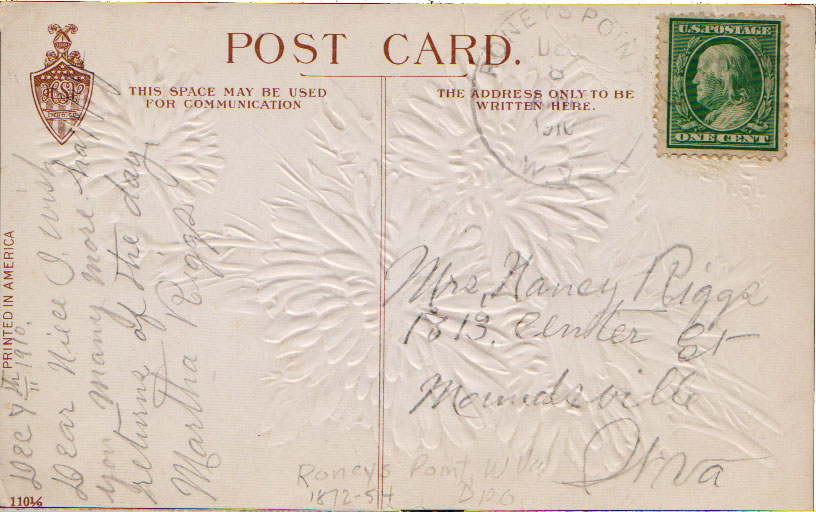 POST CARD.
THIS SPACE MAY BE USED
FOR COMMUNICATION
THE ADDRESS ONLY TO BE
WRITTEN HERE.
RONEYS POINT
DEC
8
1910
W. VA
U.S. POSTAGE
ONE CENT
PRINTED IN AMERICA
Dec 7th 1910.
Dear Niece I wish
you many more happy
returns of the day
Martha Riggs
Mrs, Nancy Riggs
1813. Center St
Moundsville
W va
Roneys Point W Va
1872-54 DPO
110½